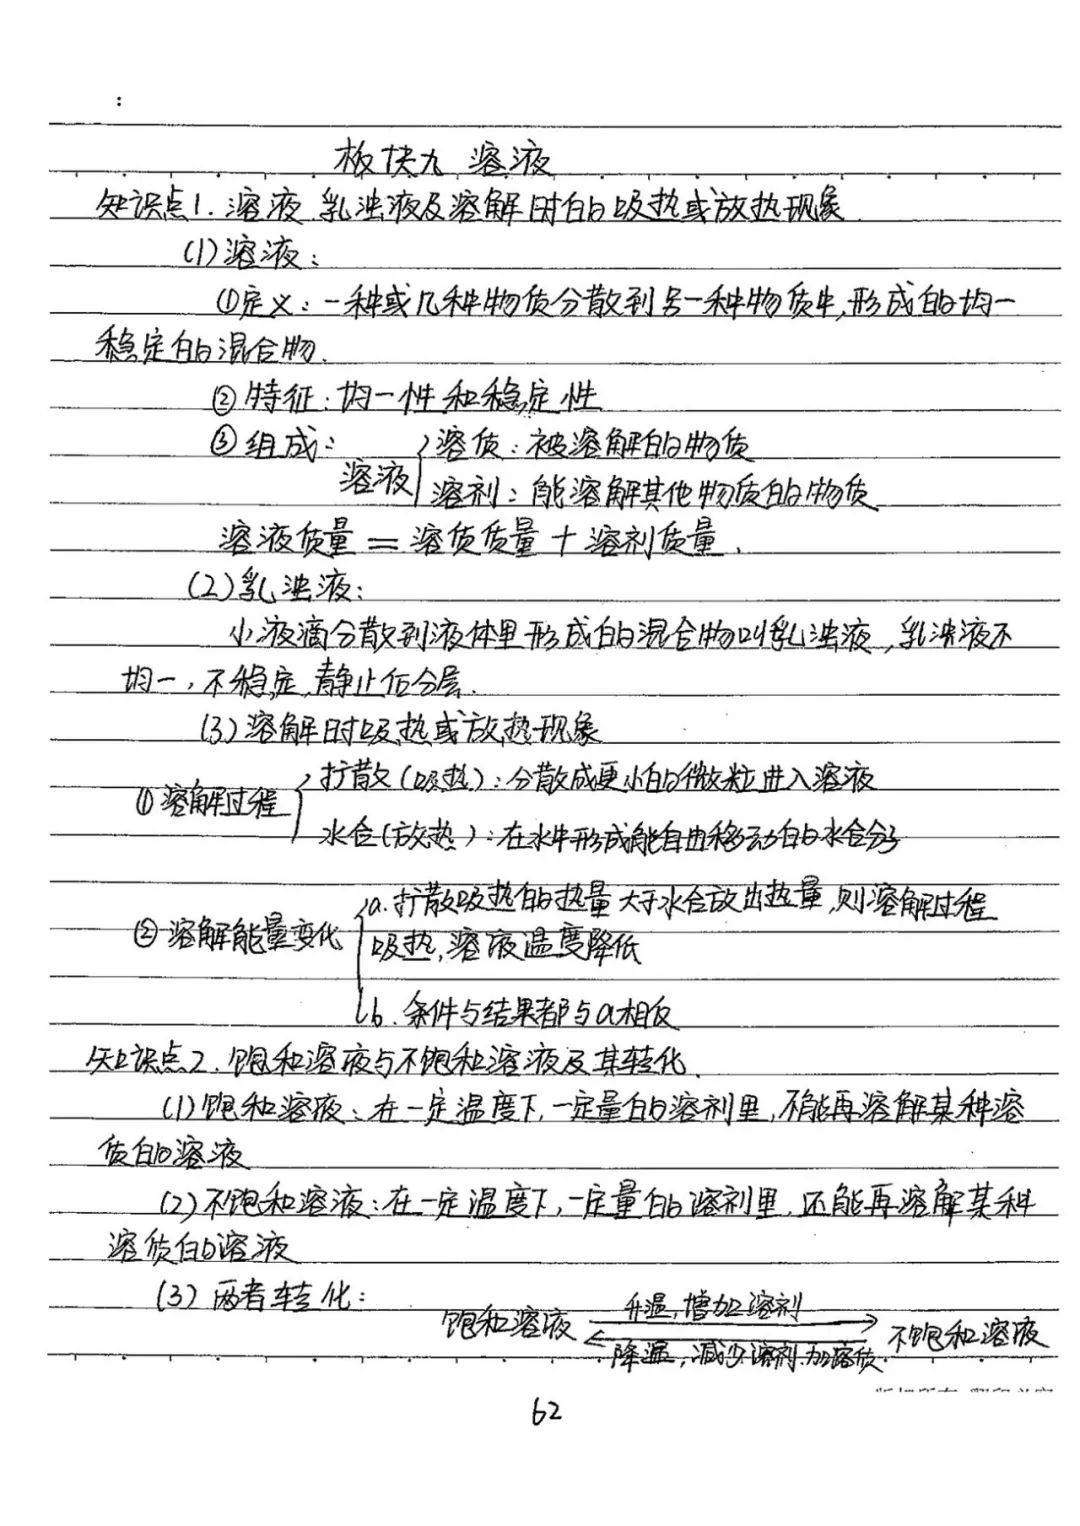 :
板块九 溶液
知识点1. 溶液 乳浊液及溶解时的吸热或放热现象
(1)溶液:
①定义: 一种或几种物质分散到另一种物质中,形成的均一
稳定的混合物.
②特征: 均一性和稳定性
③组成: 溶液 { 溶质: 被溶解的物质
溶剂: 能溶解其他物质的物质
溶液质量 = 溶质质量 + 溶剂质量.
(2)乳浊液:
小液滴分散到液体里形成的混合物叫乳浊液, 乳浊液不
均一, 不稳定, 静止后分层.
(3)溶解时吸热或放热现象
①溶解过程 { 扩散(吸热): 分散成更小的微粒进入溶液
水合(放热): 在水中形成能自由移动的水合分子
②溶解能量变化 { a. 扩散吸热的热量大于水合放出热量,则溶解过程
吸热,溶液温度降低
b. 条件与结果都与a相反
知识点2. 饱和溶液与不饱和溶液及其转化.
(1)饱和溶液: 在一定温度下,一定量的溶剂里,不能再溶解某种溶
质的溶液
(2)不饱和溶液: 在一定温度下,一定量的溶剂里,还能再溶解某种
溶质的溶液
(3)两者转化:
饱和溶液 升温,增加溶剂 不饱和溶液
降温,减少溶剂.加溶质
62